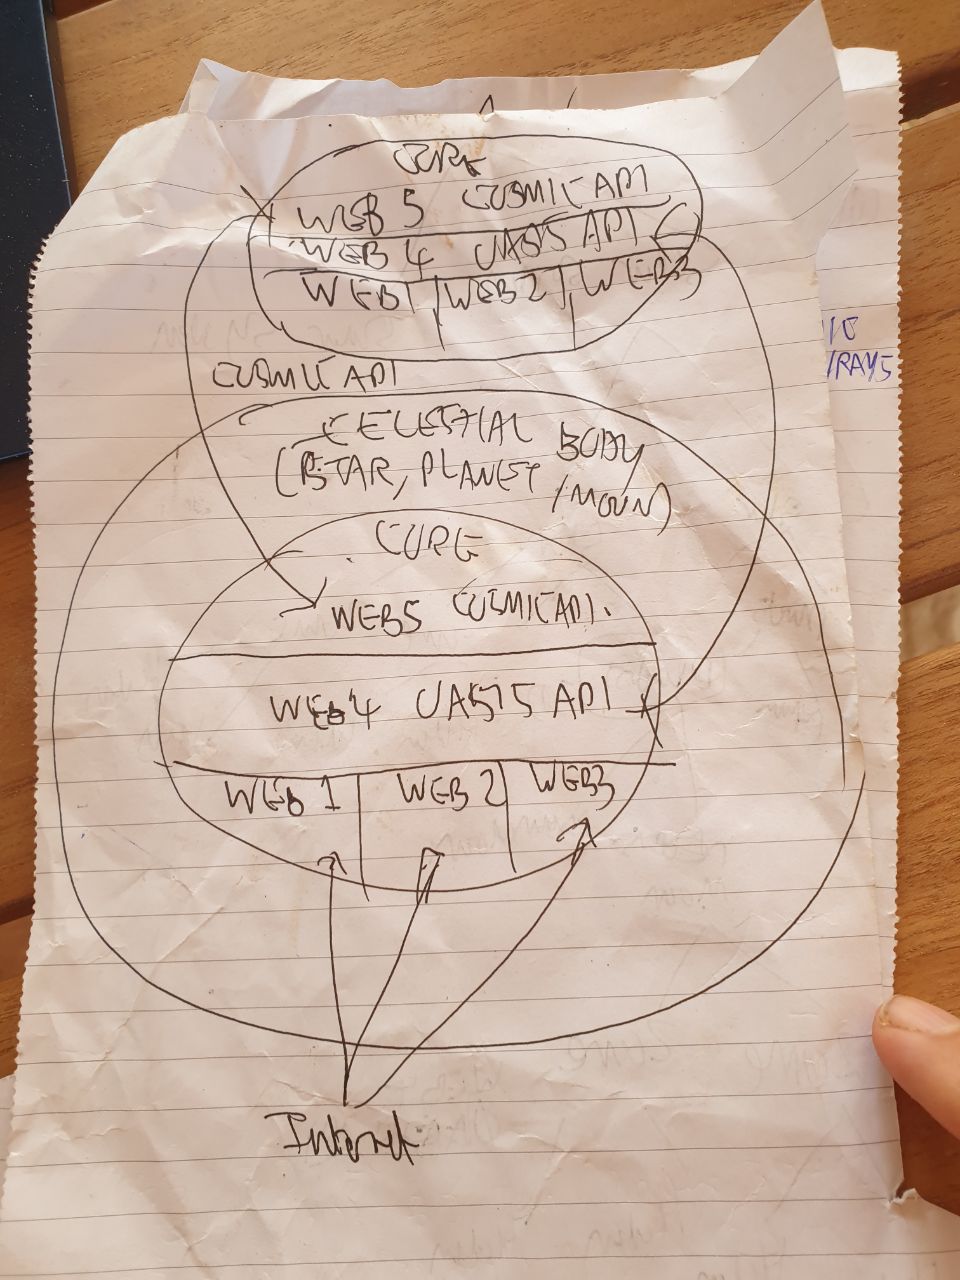 CORE
WEB 5 COSMIC API
WEB 4 OASIS API
WEB1 WEB2 WEB3
COSMIC API
CELESTIAL BODY
(STAR, PLANET /MOON)
CORE
WEB5 COSMIC API.
WEB4 OASIS API
WEB 1 WEB 2 WEB3
Internet
/RAYS